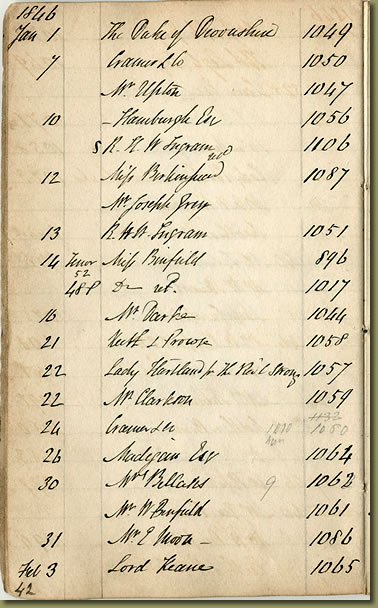 1846
Jan 1 The Duke of Devonshire 1049
7 Cramer & Co 1050
Mr Upton 1047
10 - Hamburgh Esq 1056
S R. H. W Ingram 1106
12 Miss 1087
Mr Joseph Gray
13 R. H W. Ingram 1051
14 Tenor Miss Binfield 896
52
48 D 1017
16 Mr 1044
21 Keith & Prowse 1058
22 Lady Hartland 1057
22 Mr Clarkson 1059
1132
24 Cramer & Co 1050
26 Madigan Esq 1064
30 Mrs Bellaks 9 1062
Mr W. Binfield 1061
31 Mr E Moon - 1086
Feb 3 Lord Keane 1065
42